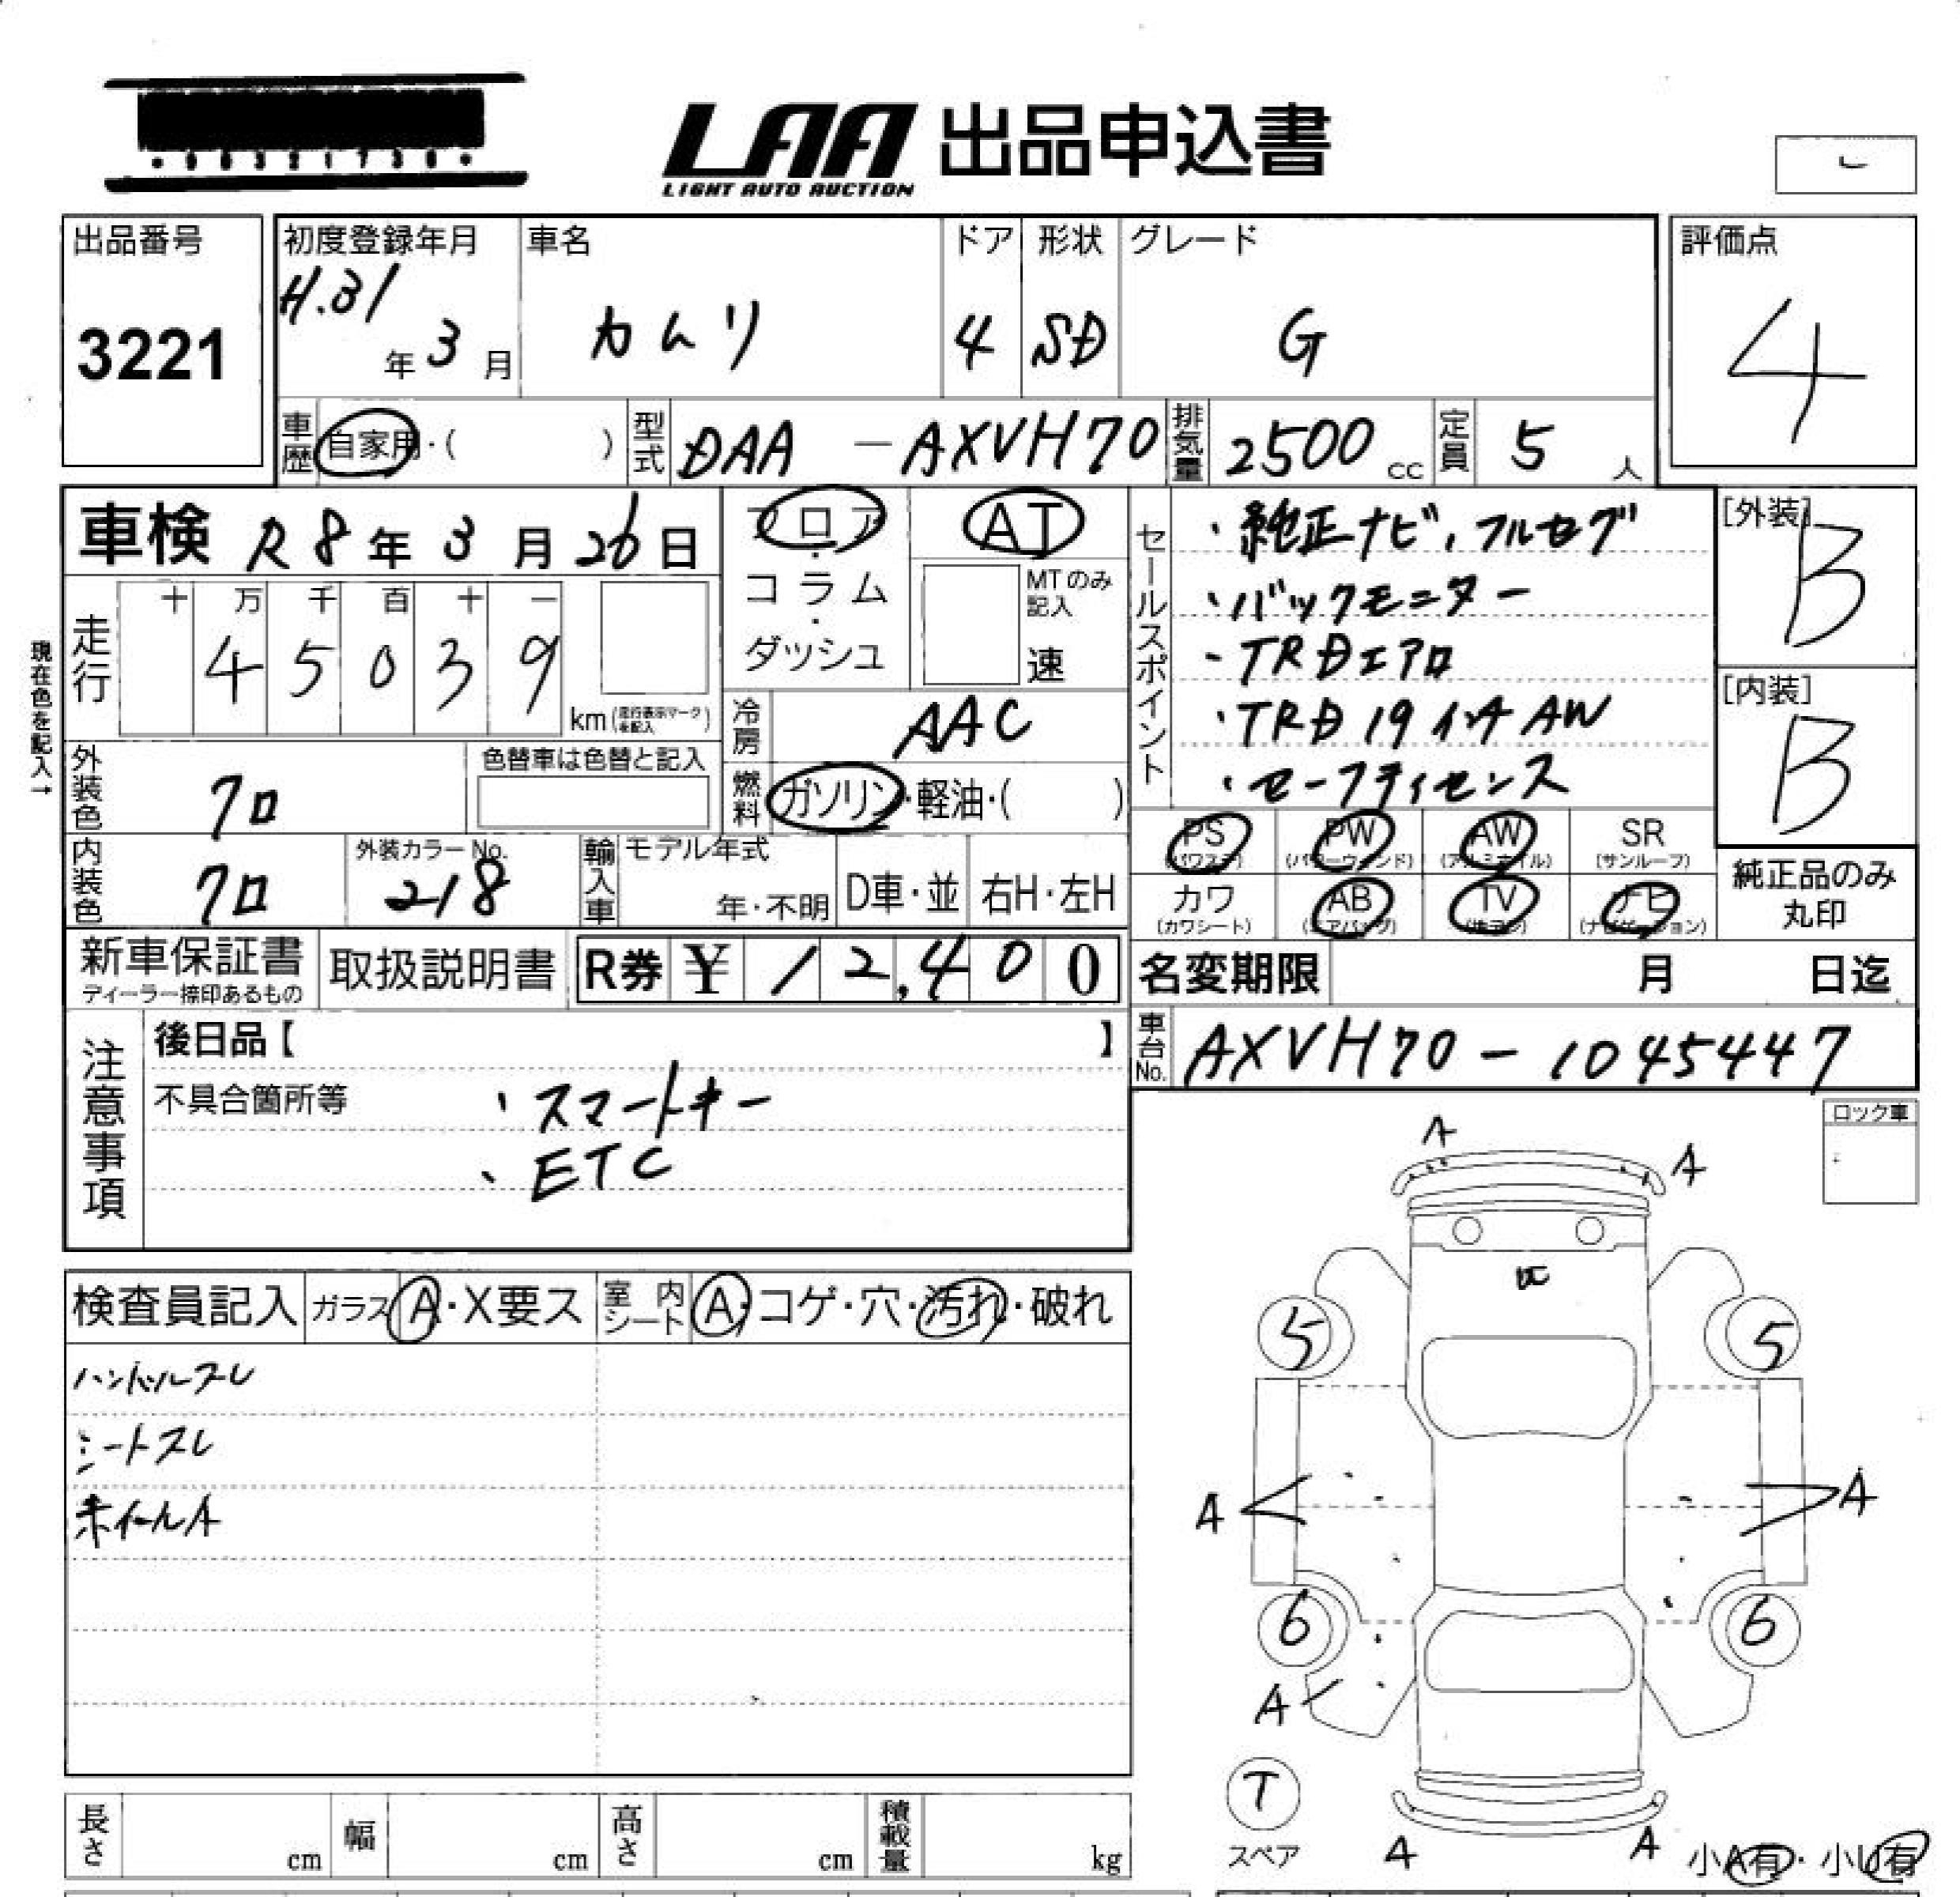 LAA 出品申込書
LIGHT AUTO AUCTION
出品番号
3221
初度登録年月
H.31 年 3 月
車名
カムリ
ドア
4
形状
SD
グレード
G
評価点
4
車歴 自家用・( )
型式 DAA - AXVH70
排気量 2500 cc
定員 5 人
車検 R8 年 3 月 26 日
フロア・コラム・ダッシュ
AT
MTのみ記入
速
現在色を記入→
走行
十 万 千 百 十 一
4 5 0 3 9
km(走行表示マークを記入)
冷房 AAC
燃料 ガソリン・軽油・( )
外装色 クロ
色替車は色替と記入
内装色 クロ
外装カラーNo.
218
輸入車
モデル年式
年・不明
D車・並
右H・左H
セールスポイント
・純正ナビ,フルセグ
・バックモニター
・TRDエアロ
・TRD 19インチ AW
・セーフティセンス
[外装]
B
[内装]
B
PS (パワステ)
PW (パワーウィンド)
AW (アルミホイル)
SR (サンルーフ)
カワ (カワシート)
AB (エアバッグ)
TV
ナビ (ナビゲーション)
純正品のみ
丸印
新車保証書
ディーラー捺印あるもの
取扱説明書
R券 ¥ 12,400
名変期限 月 日迄
注意事項
後日品【 】
不具合箇所等
・スマートキー
・ETC
車台No. AXVH70 - 1045447
ロック車
検査員記入
ガラス A・X要ス
室内シート A・コゲ・穴・汚れ・破れ
ハンドルスレ
シートスレ
ホイールA
A
A
5
5
A
A
6
6
A
T
スペア
A
A
小A有・小U有
長さ cm
幅 cm
高さ cm
積載量 kg